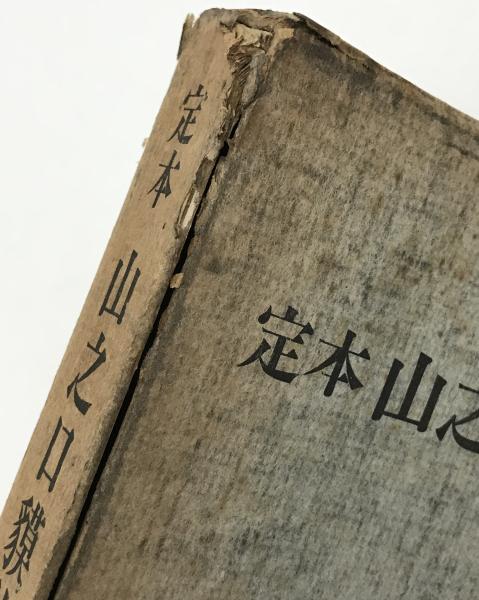 定本 山之口貘
定本 山之